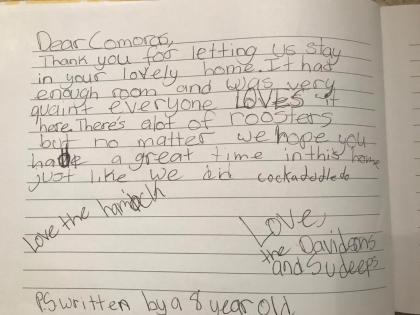 Dear Comoros,
Thank you for letting us stay
in your lovely home. It had
enough room and was very
quaint everyone LOVES it
here. There's alot of roosters
but no matter we hope you
have a great time in this home
just like we did cockadoodledo
Love the hamock
Love,
the Davidsons
and Sudeeps
P.S written by a 8 year old.